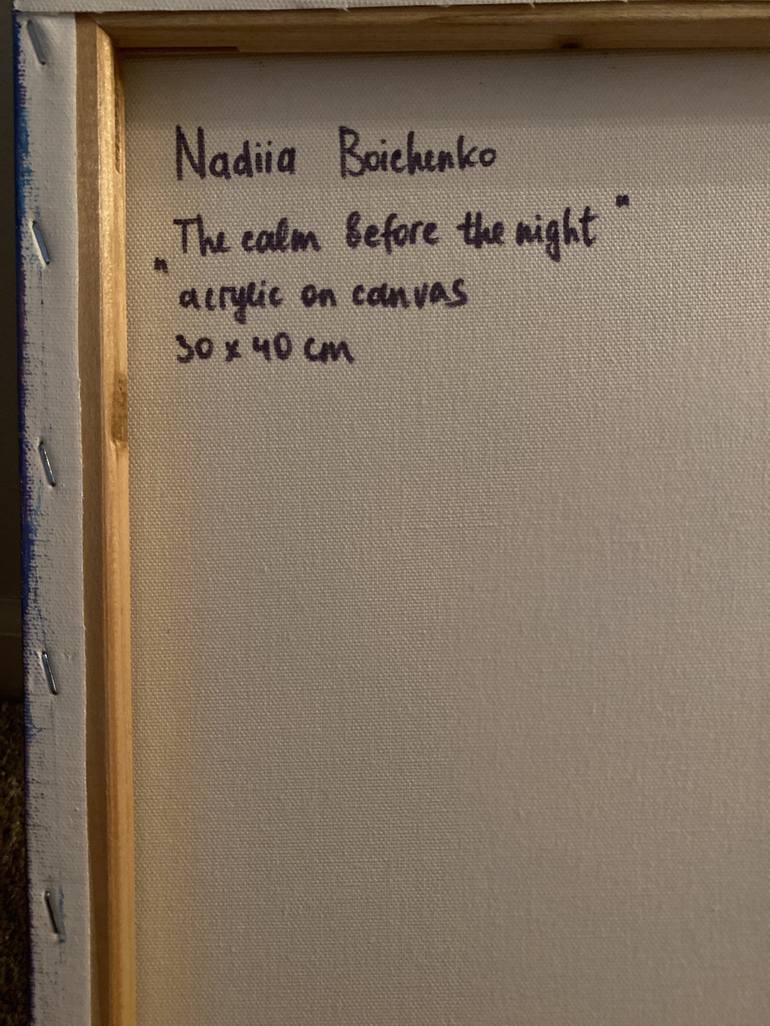 Nadiia Boichenko
„The calm before the night"
acrylic on canvas
30 x 40 cm